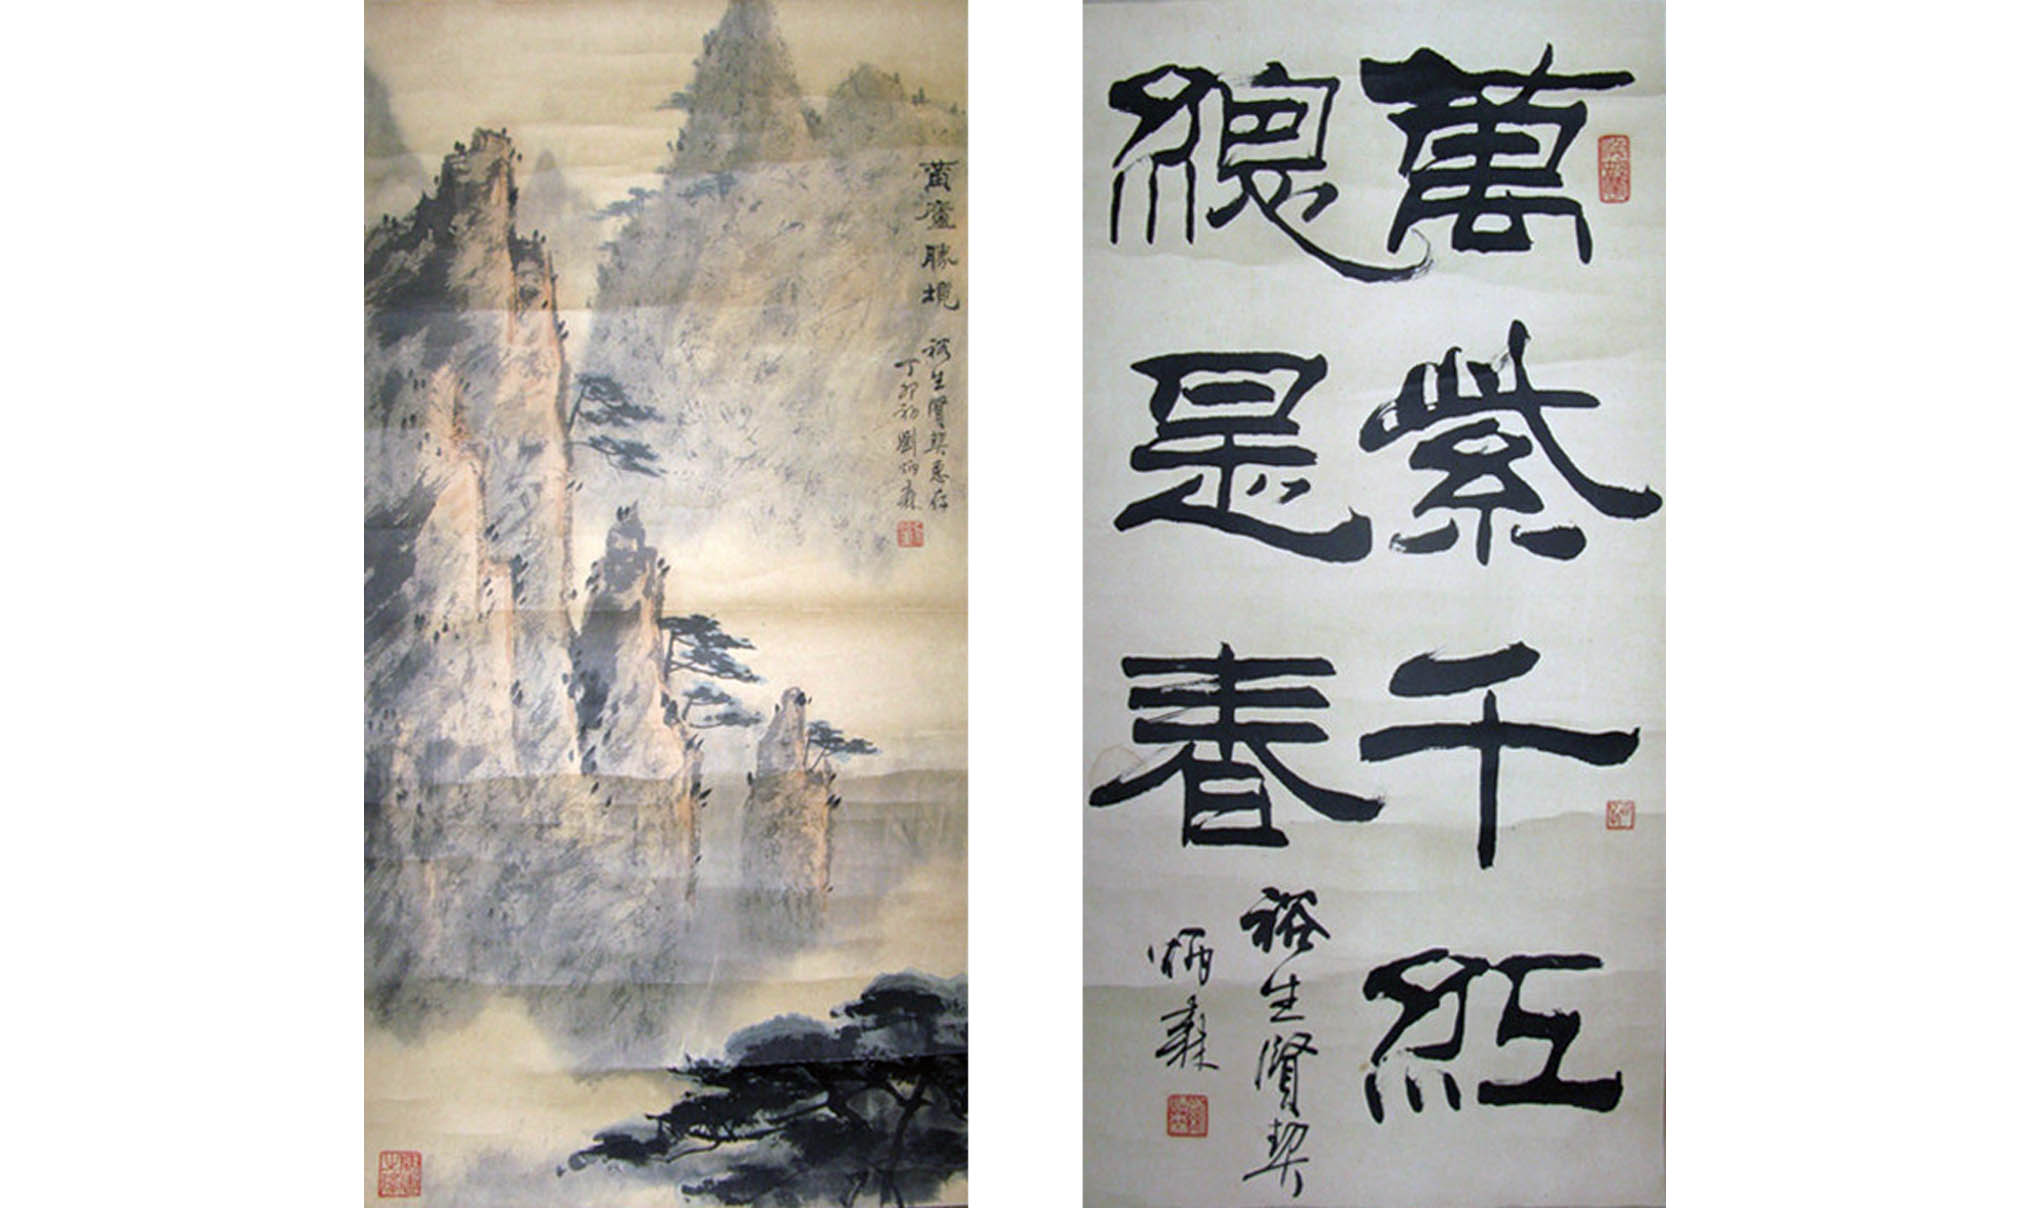 黃盦勝境
裕生賢契惠存
丁卯初劉炳森
萬紫千紅
總是春
裕生賢契
炳森